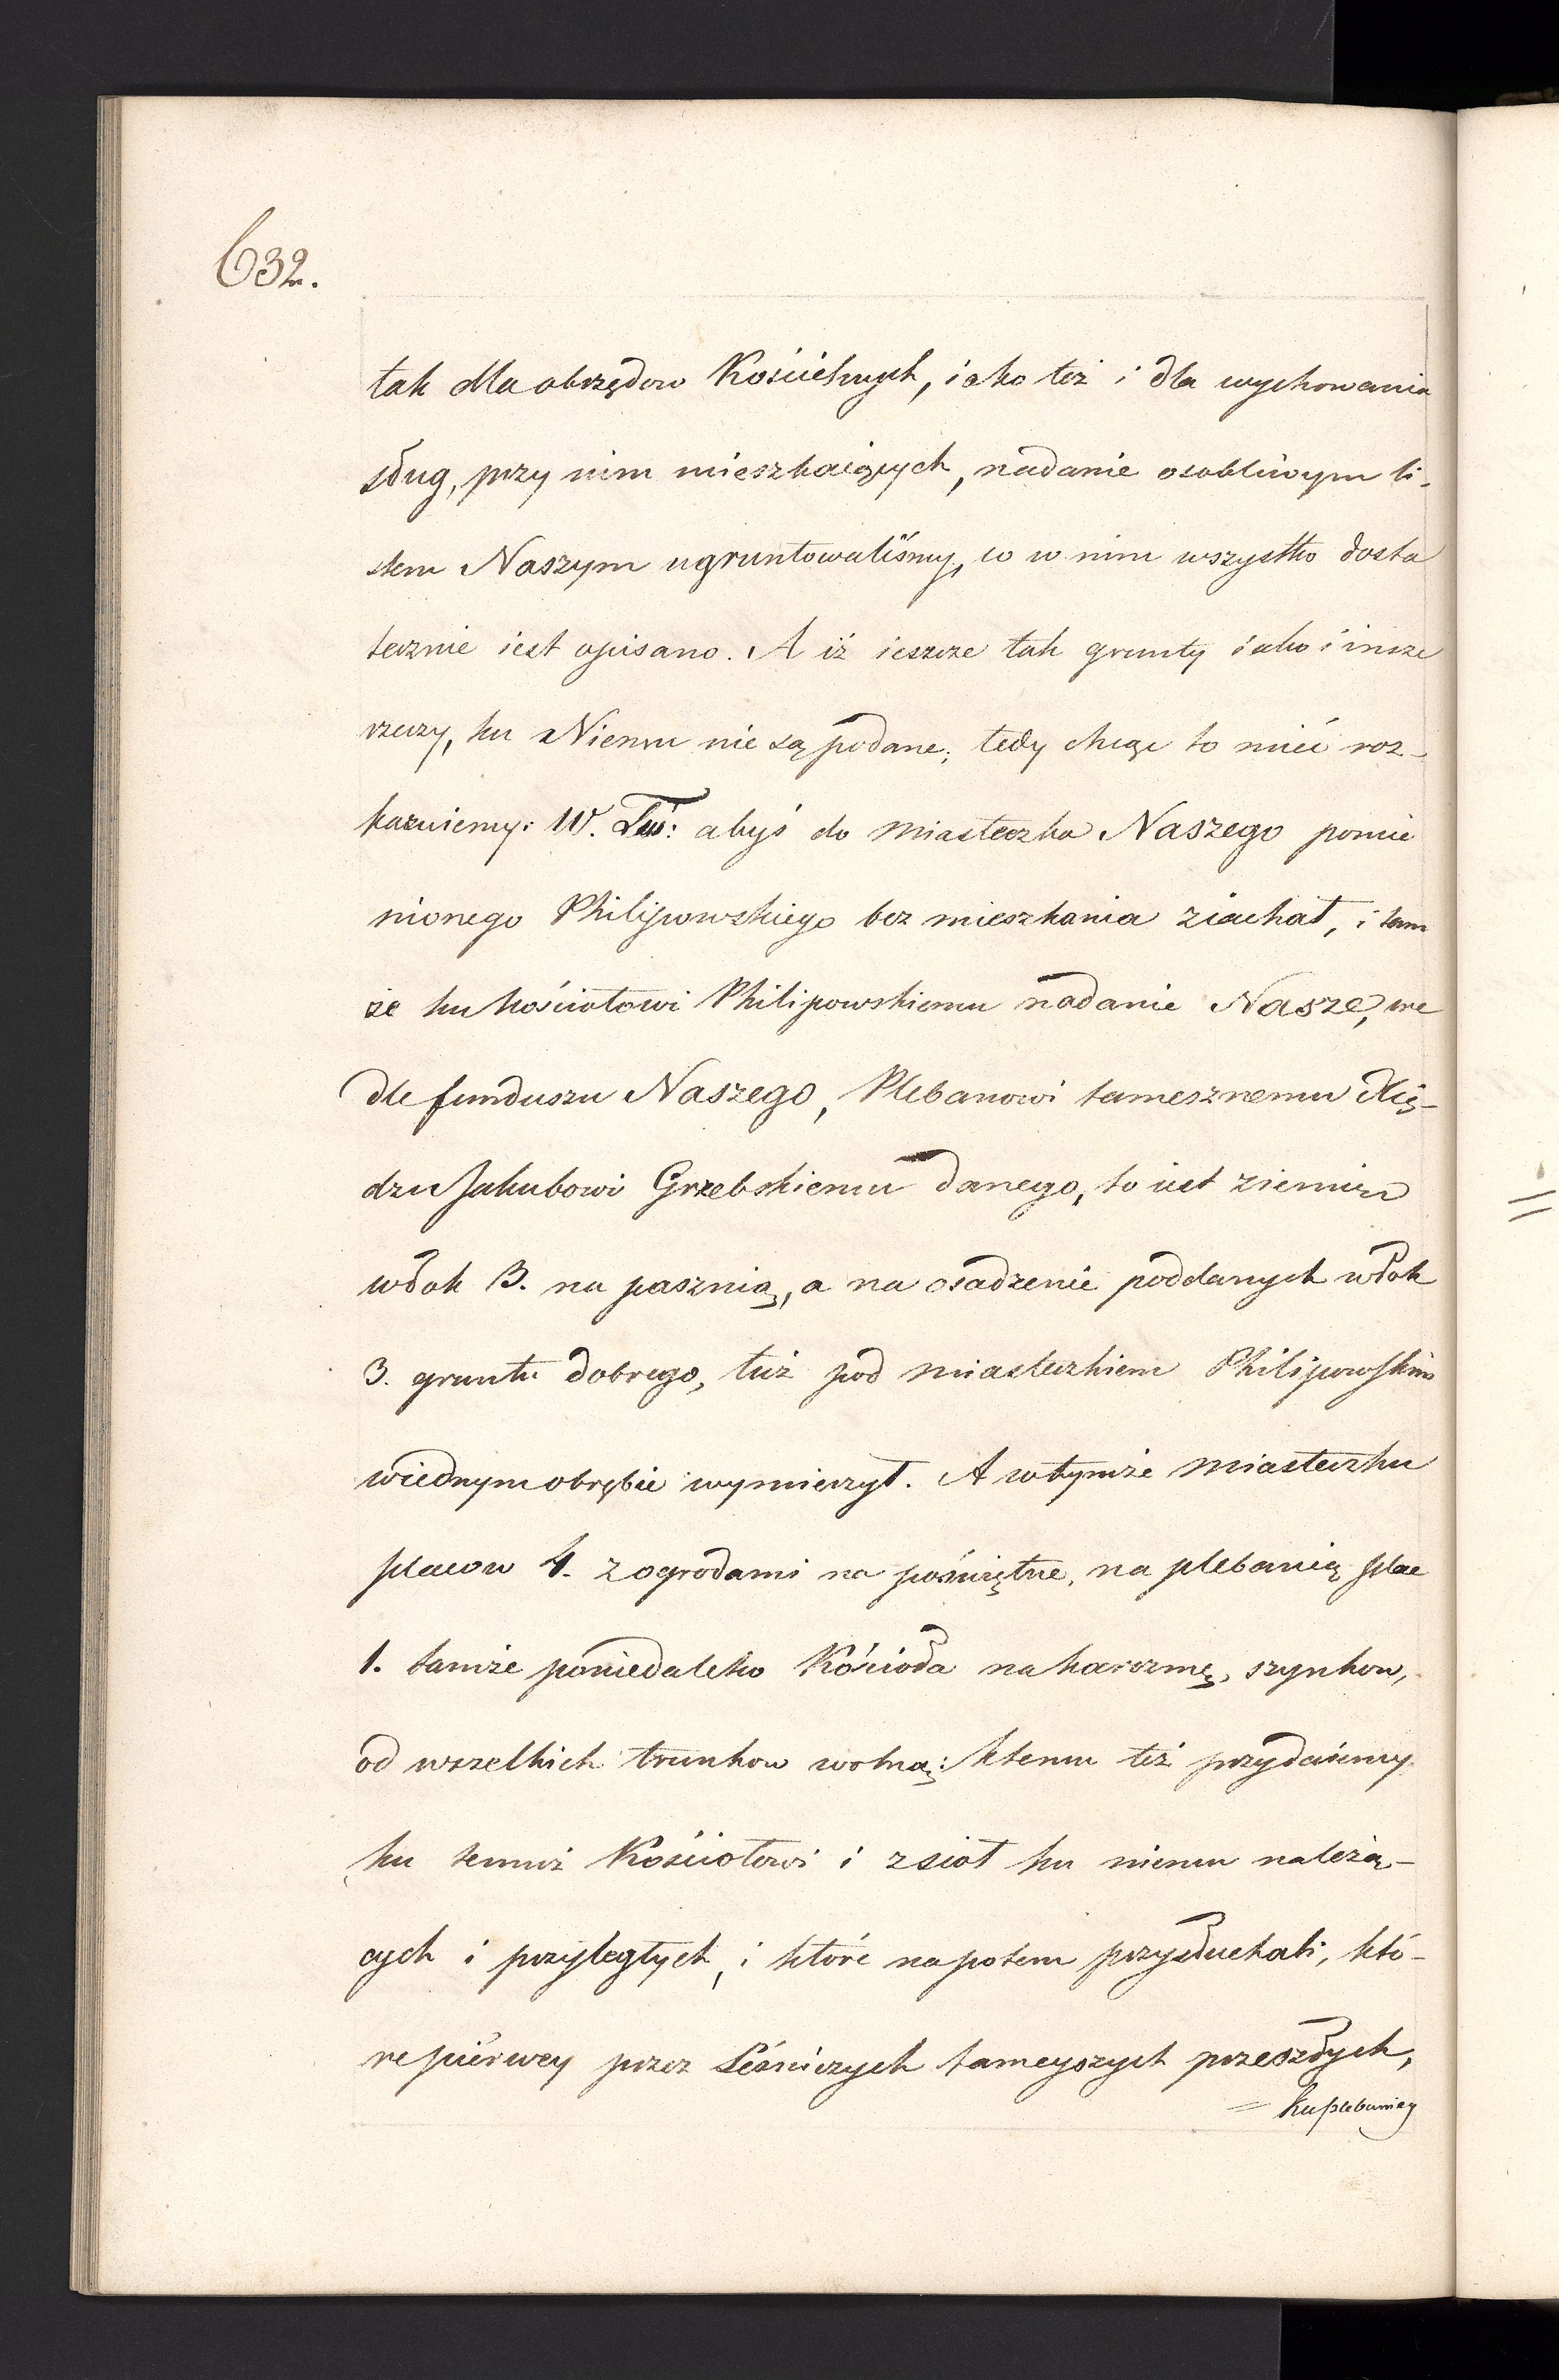 632.
tak dla obrzędow Kościelnych, iako też i dla wychowania
sług, przy nim mieszkaiących, nadanie osobliwym li-
stem Naszym ugruntowaliśmy, co w nim wszystko dosta
tecznie iest opisano. A iż ieszcze tak grunty iako i insze
rzeczy, ku Niemu nie są podane; tedy chcąc to mieć roz-
kazuiemy: W. Tw: abyś do miasteczka Naszego pomie
nionego Philipowskiego bez mieszkania ziachał, i tam
że ku kościołowi Philipowskiemu nadanie Nasze, we
dle funduszu Naszego, Plebanowi tamesznemu Xię-
dzu Jakubowi Grzebskiemu danego, to iest ziemię
włok 3. na pasznią, a na osadzenie poddanych włok
3. gruntu dobrego, tuż pod miasteczkiem Philipowskim
wiednym obrębie wymierzył. A wtymże miasteczku
placow 4. z ogrodami na poświętne, na plebanią plac
1. tamże poniedaleko Kościoła na karczmę, szynkow,
od wszelkich trunkow wolną: ktemu też przydaiemy
ku temuż Kościołowi i z siół ku niemu należą-
cych i przyległych, i które napotem przysłuchali, któ-
re pierwey przez Leśniczych tameyszych przeszłych,
= ku plebaniey